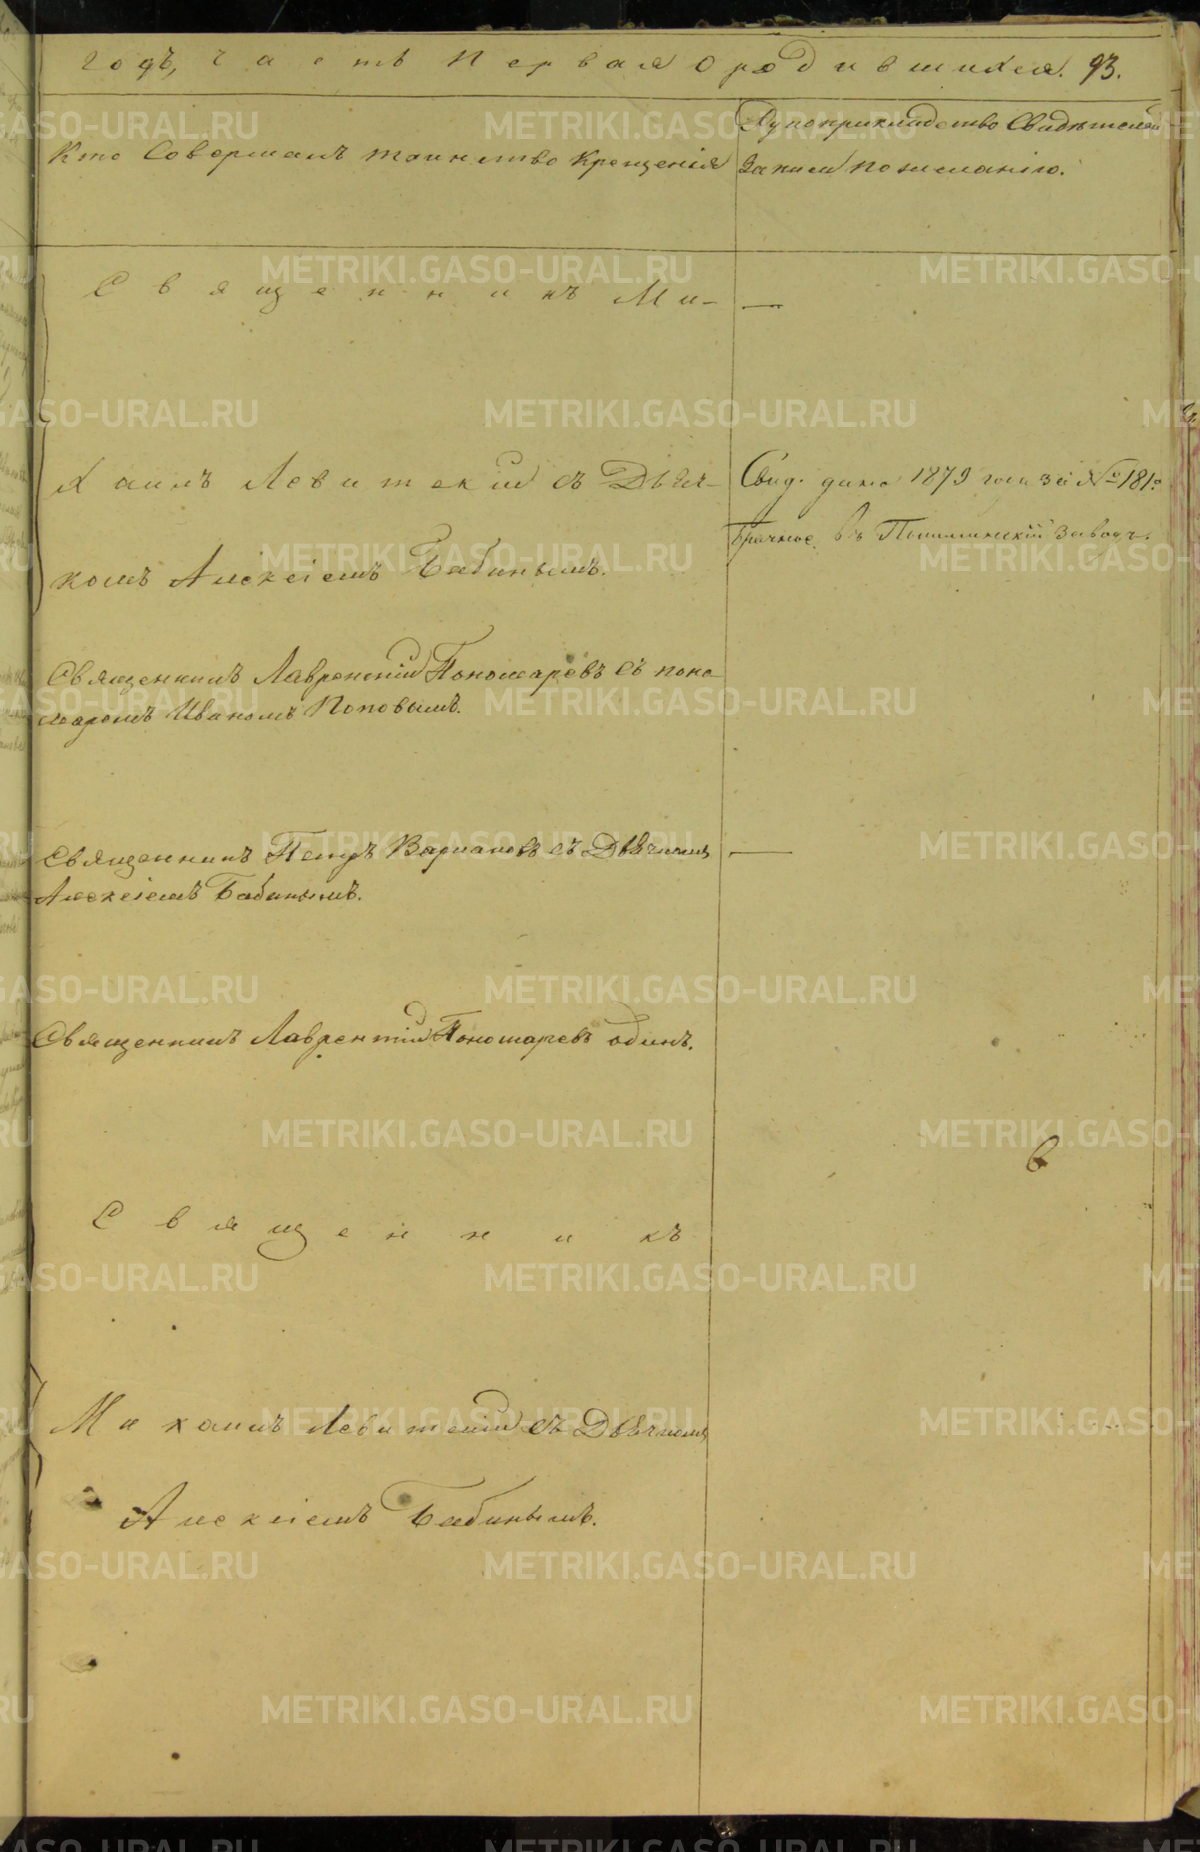 годъ, часть первая о родившихся. 93.
Кто Совершалъ таинство Крещенія
Рукоприкладство Свидѣтелей
записи по желанію.
Священникъ Ми-
—
хаилъ Левитскій съ Дьяч-
Свид. дано 1879 года за № 181.
брачное, въ Пышминскій заводъ.
комъ Алексіемъ Бабинымъ.
Священникъ Лаврентій Пономаревъ съ поно
маремъ Иваномъ Поповымъ.
Священникъ Петръ Варнаковъ съ Дьячкомъ
—
Алексіемъ Бабинымъ.
Священникъ Лаврентій Пономаревъ одинъ.
Священникъ
Михаилъ Левитскій съ Дьячкомъ
Алексіемъ Бабинымъ.
METRIKI.GASO-URAL.RU